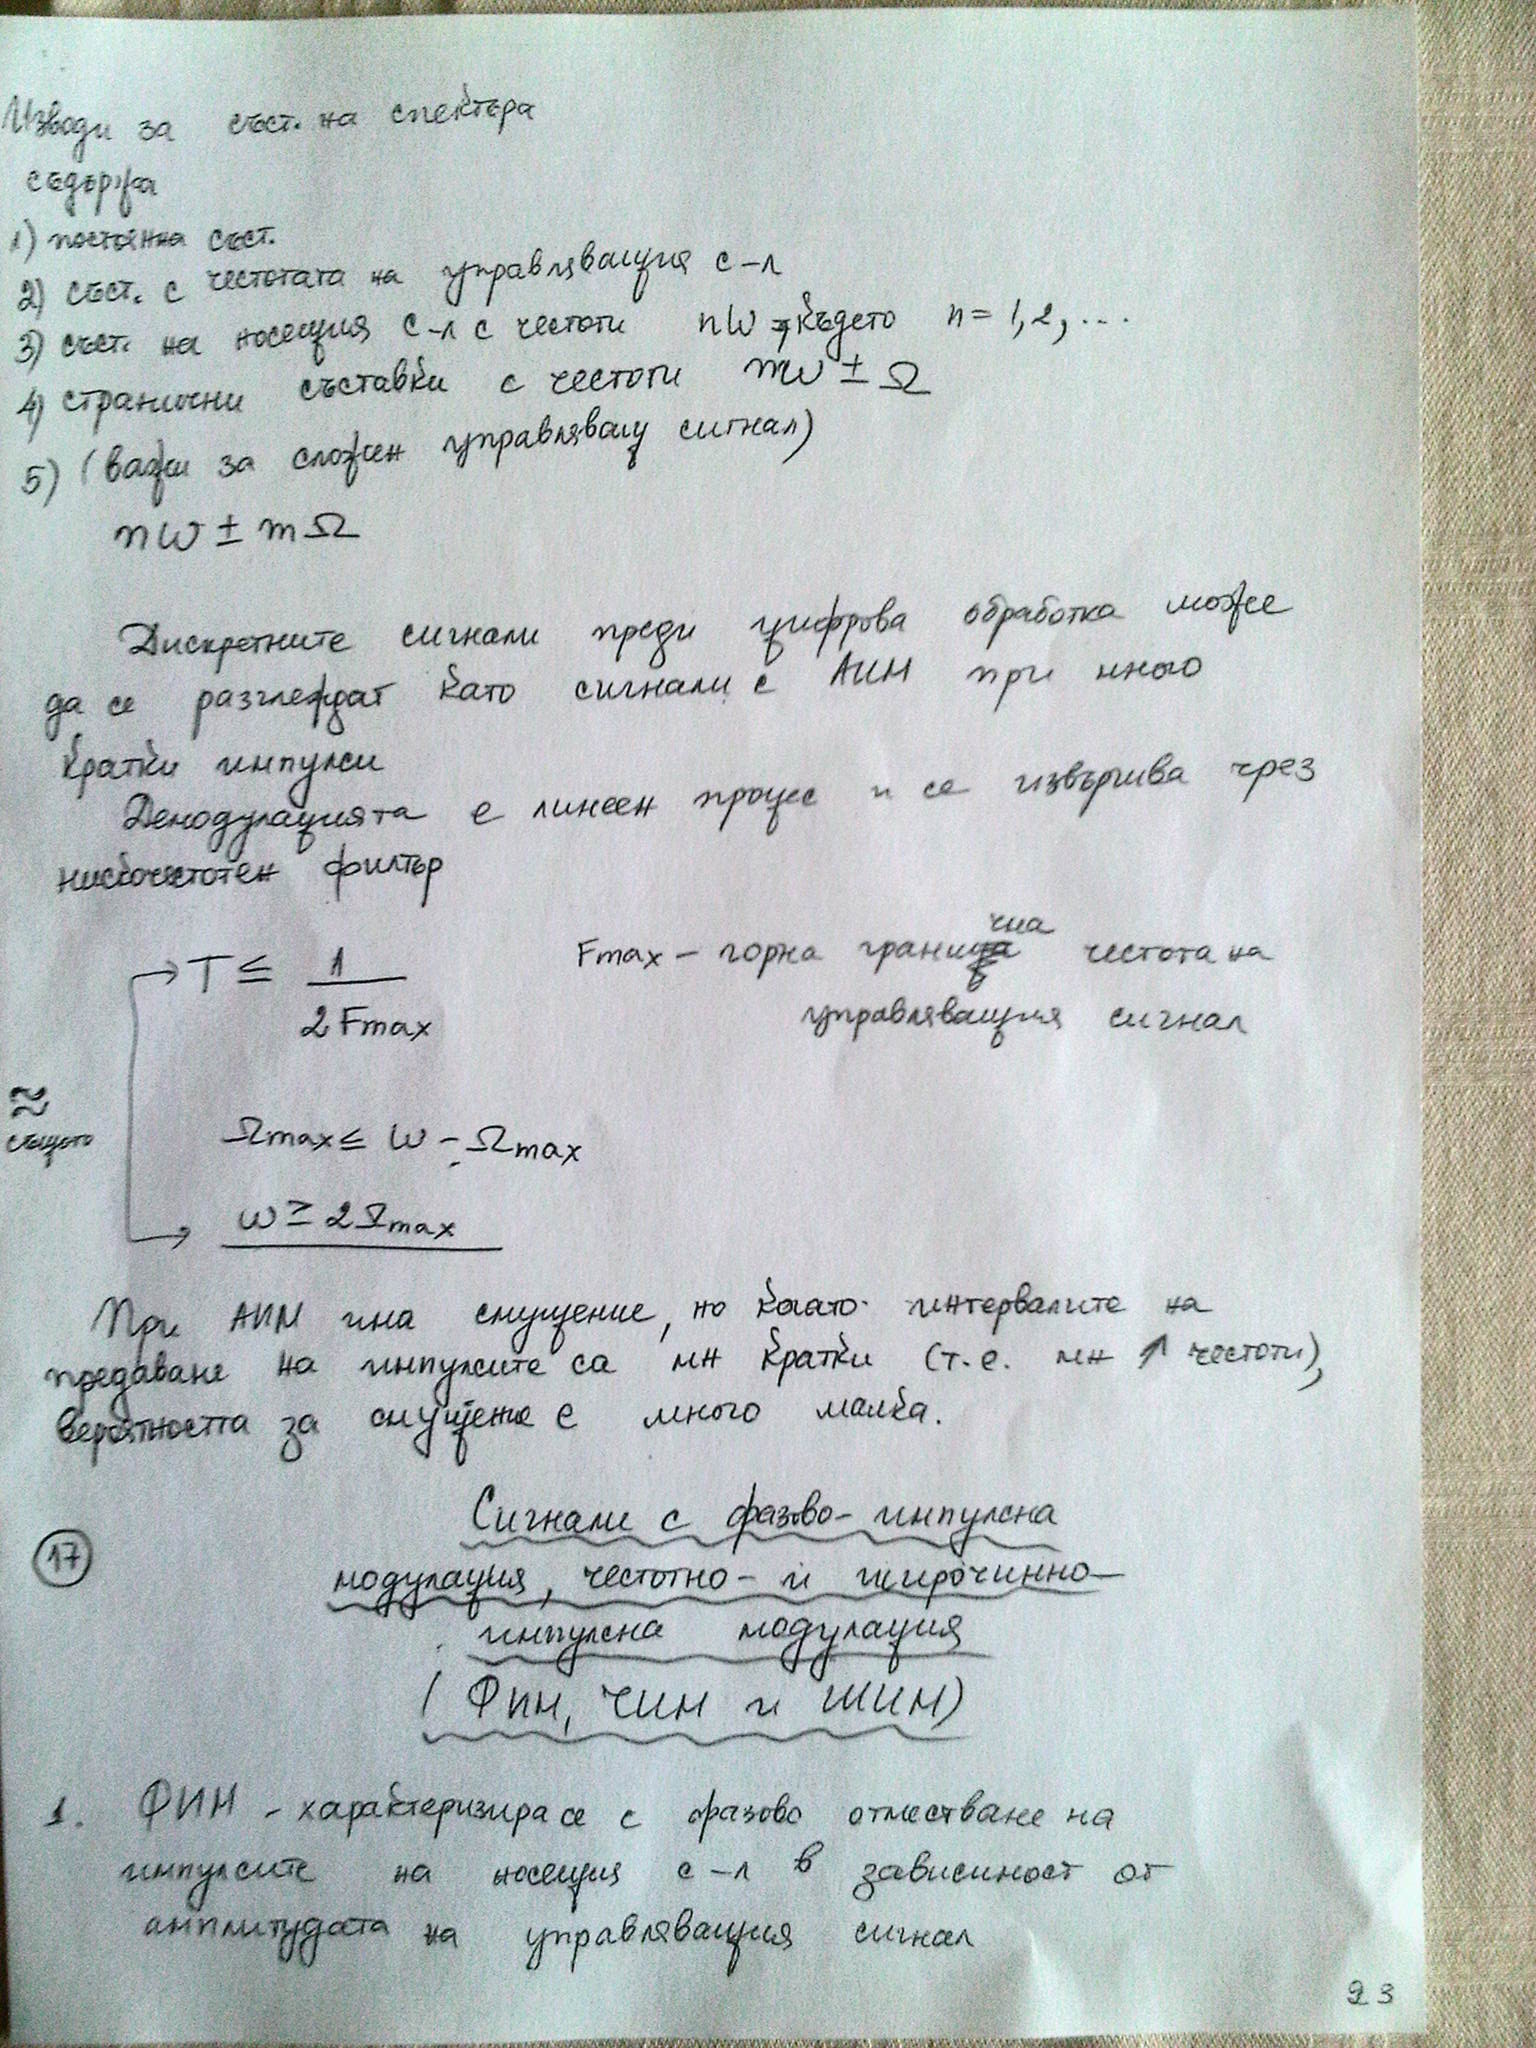 Изводи за съст. на спектъра
съдържа
1) постоянна съст.
2) съст. с честотата на управляващия с-л
3) съст. на носещия с-л с честоти nω, където n = 1, 2, ...
4) странични съставки с честоти nω ± Ω
5) (важи за сложен управляващ сигнал)
nω ± mΩ
Дискретните сигнали преди цифрова обработка може
да се разглеждат като сигнали с АИМ при много
кратки импулси
Демодулацията е линеен процес и се извършва чрез
нискочестотен филтър
T ≤ 1 / 2Fmax
Fmax - горна гранична честота на
управляващия сигнал
≈
същото
Ωmax ≤ ω - Ωmax
ω ≥ 2Ωmax
При АИМ има смущение, но когато интервалите на
предаване на импулсите са мн кратки (т.е. мн ↑ честоти),
вероятността за смущение е много малка.
17
Сигнали с фазово-импулсна
модулация, честотно- и широчинно-
импулсна модулация
(ФИМ, ЧИМ и ШИМ)
1. ФИМ - характеризира се с фазово отместване на
импулсите на носещия с-л в зависимост от
амплитудата на управляващия сигнал
23